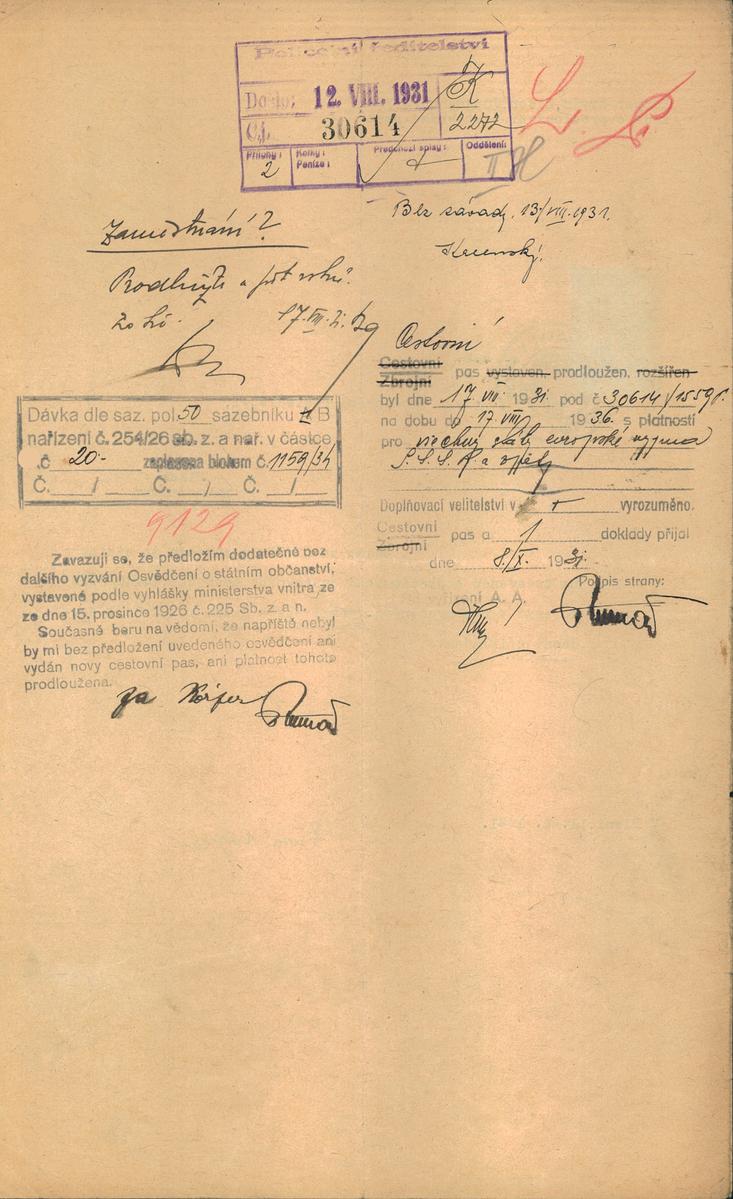 Policejní ředitelství
Došlo: 12. VIII. 1931
Čj. 30614
2272
Přílohy: 2 Kolky: Peníze: Předchozí spisy: Oddělení:
Bez závady, 13/VIII. 1931.
Zaměstnání?
Prodlužte a
17.VIII.31.
Cestovní
Cestovní
Zbrojní
pas vystaven, prodloužen, rozšířen
byl dne 17 VIII. 1931 pod č 30614/
na dobu do 17 VIII 1936. s platností
pro všechny evropské vyjma
S.S.S.R. a zpět
Doplňovací velitelství v vyrozuměno.
Cestovní
Zbrojní
pas a 1 doklady přijal
dne 8/X. 1931
Podpis strany:
Dávka dle saz. pol 50 sazebníku B
nařízení č. 254/26 sb. z. a nař. v částce
č 20.- zaplacena blokem č. 1159/31
Č. / Č. / Č. /
9129
Zavazuji se, že předložím dodatečně bez
dalšího vyzvání Osvědčení o státním občanství,
vystavené podle vyhlášky ministerstva vnitra ze
ze dne 15. prosince 1926 č. 225 Sb. z. a n.
Současně beru na vědomí, že napříště nebyl
by mi bez předložení uvedeného osvědčení ani
vydán nový cestovní pas, ani platnost tohoto
prodloužena.